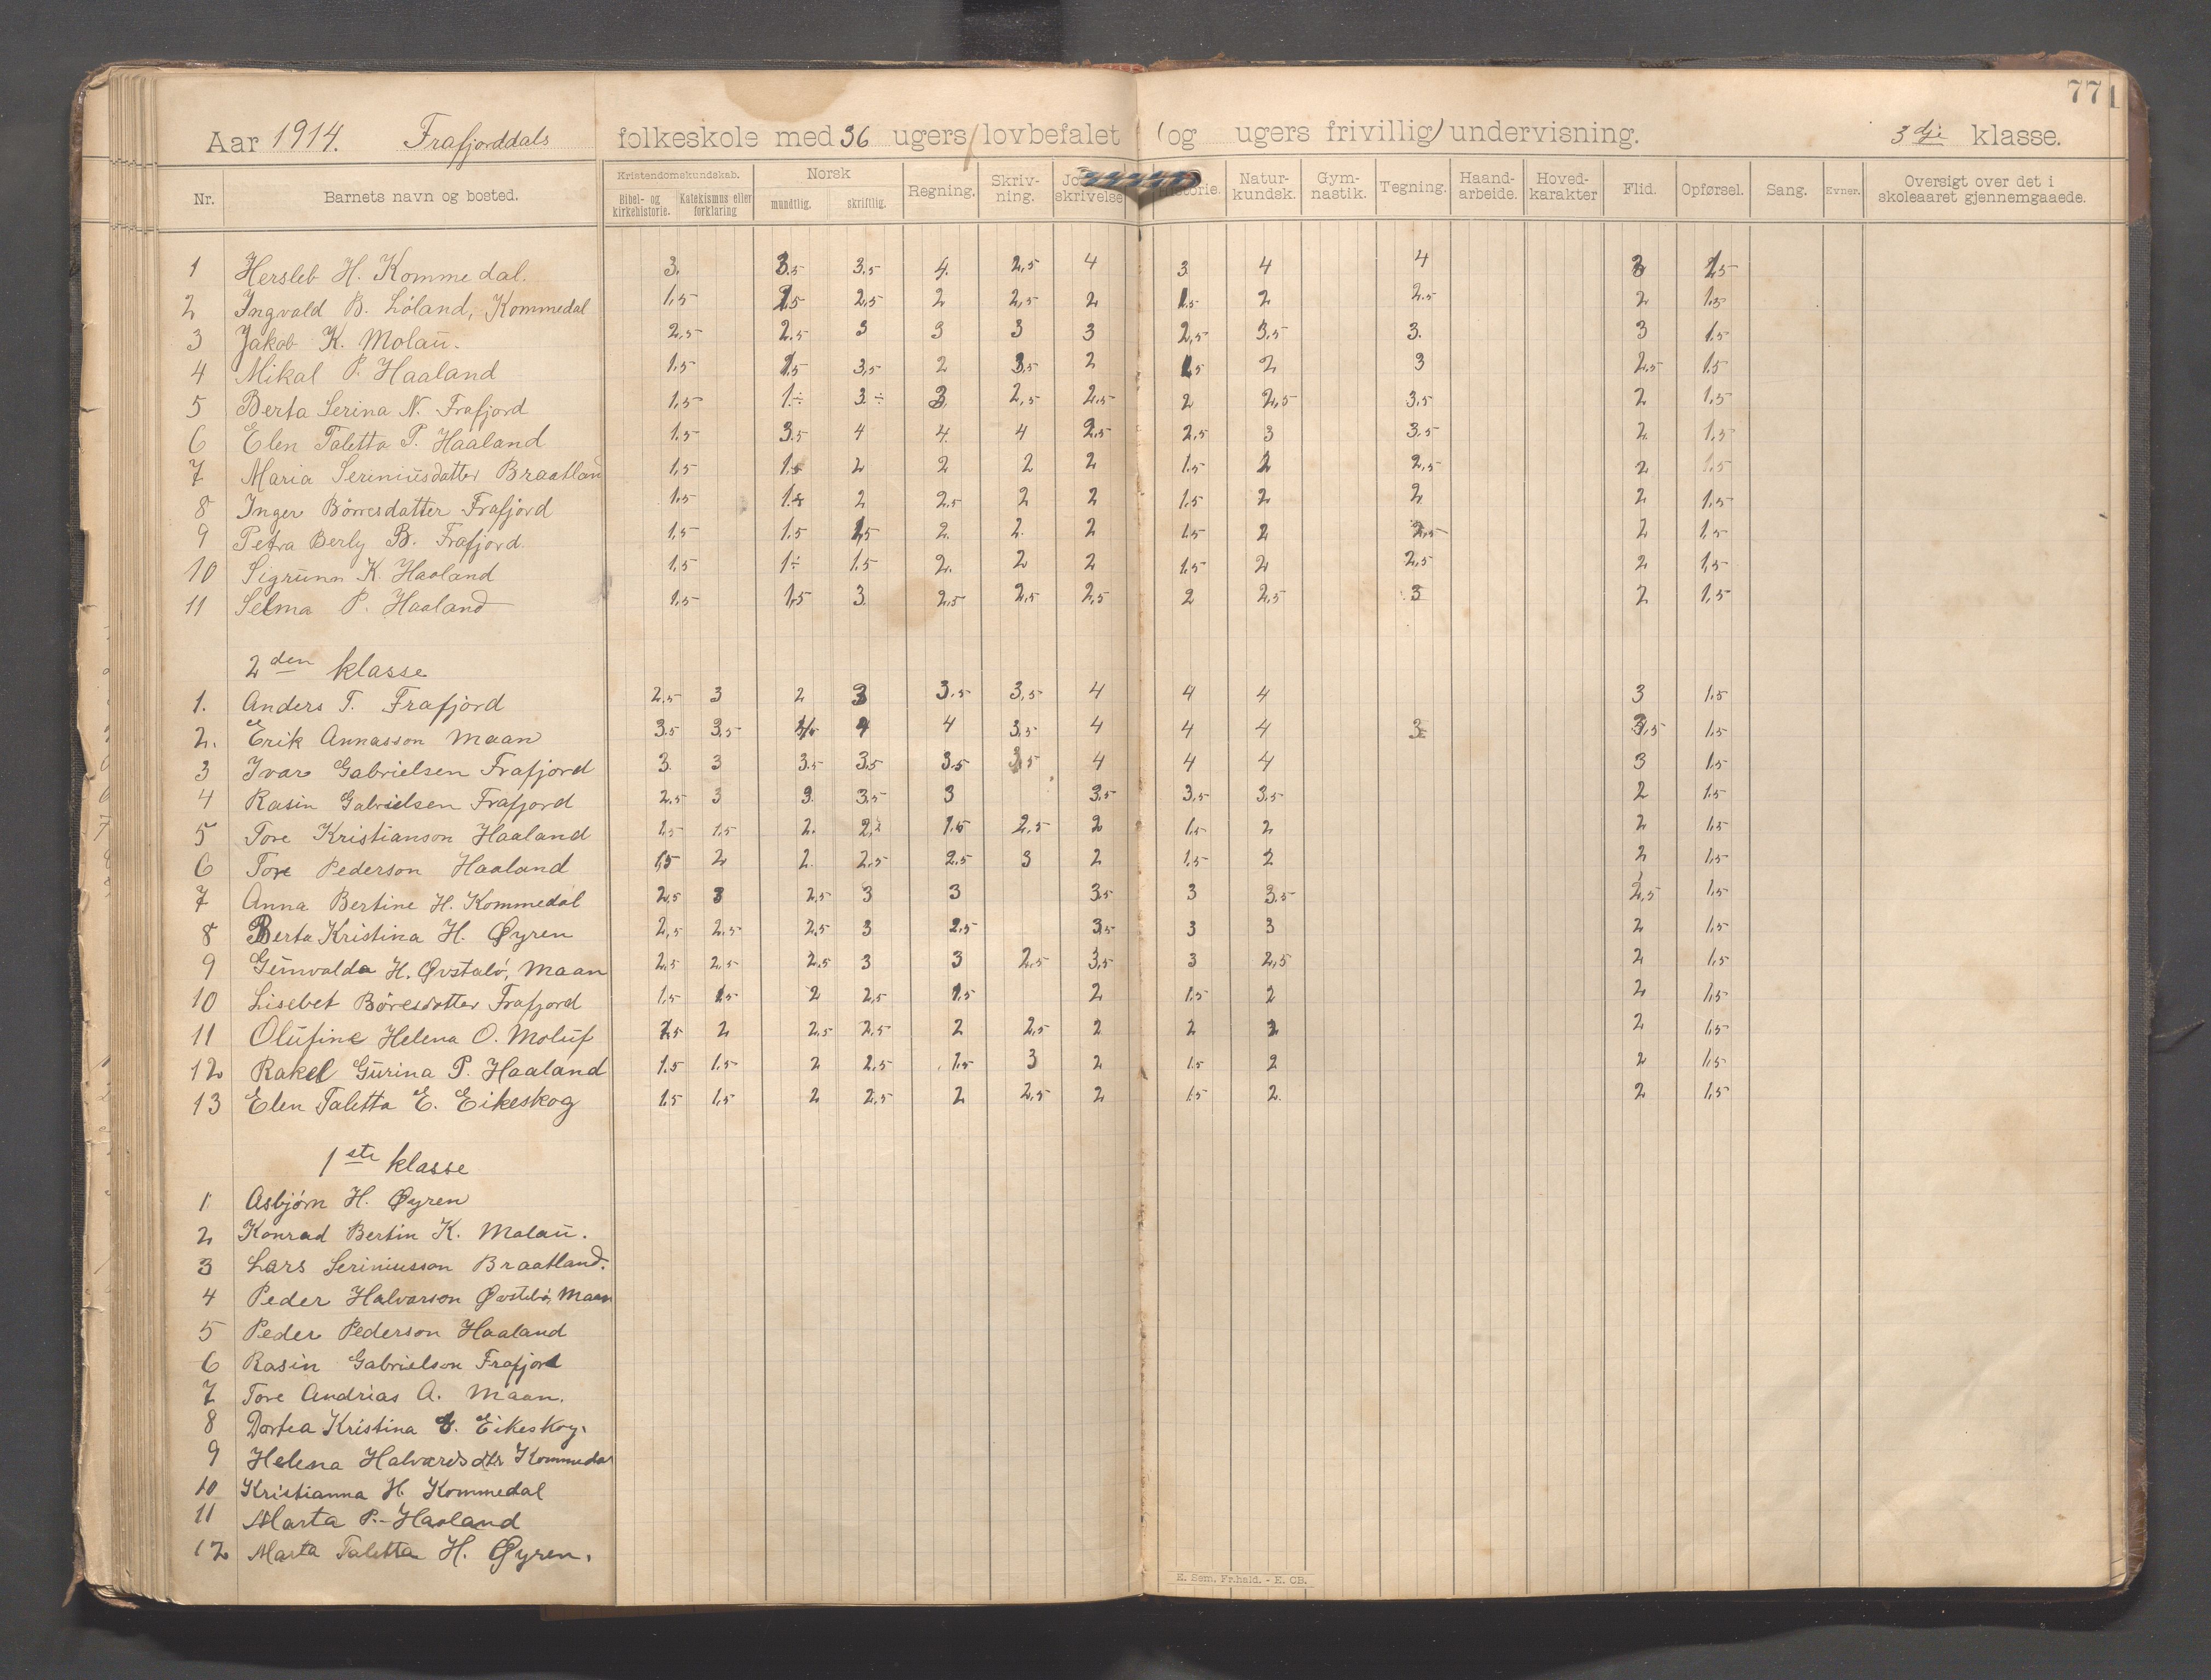 77
Aar 1914. Frafjorddals folkeskole med 36 ugers lovbefalet (og ugers frivillig) undervisning. 3dje klasse.
Nr. Barnets navn og bosted. Kristendomskundskab. Bibel- og kirkehistorie. Katekismus eller forklaring Norsk mundtlig. skriftlig. Regning. Skriv-ning. skrivelse Natur-kundsk. Gym-nastik. Tegning. Haand-arbeide. Hoved-karakter Flid. Opførsel. Sang. Evner. Oversigt over det i skoleaaret gjennemgaaede.
1 Hersleb H. Kommedal. 3. 3.5 3.5 4. 2,5 4 3. 4 4 3 1,5
2 Ingvald B. Löland, Kommedal 1,5 1,5 2,5 2 2,5 2 1.5 2 2.5 2 1.5
3 Jakob K. Molaü. 2,5 2.5 3 3 3 3 2,5 3.5 3. 3 1.5
4 Mikal P. Haaland 1.5 1.5 3,5 2 3,5 2 1,5 2 3 2.5 1.5
5 Berta Serina N. Frafjord 1,5 1.÷ 3 ÷ 3. 2,5 2.5 2 2,5 3.5 2 1.5
6 Elen Taletta P. Haaland 1.5 3.5 4 4. 4 2.5 2,5 3 3.5 2. 1.5
7 Maria Seriniüsdatter Braatland 1,5 1.5 2 2 2 2 1.5 2 2,5 2 1.5
8 Inger Börresdatter Frafjord 1.5 1.5 2 2,5 2 2 1.5 2 2. 2 1.5
9 Petra Berly B. Frafjord. 1,5 1.5 1,5 2. 2. 2 1.5 2 2,5 2 1,5
10 Sigrünn K. Haaland 1.5 1÷ 1.5 2. 2 2 1.5 2 2,5 2 1,5
11 Selma P. Haaland 1.5 1,5 3. 2,5 2,5 2,5 2 2,5 3 2 1,5
2den klasse
1. Anders T. Frafjord 2.5 3 2 3 3.5 3,5 4 4 4 3 1.5
2. Erik Annasson Maan 3.5 3,5 4 4 3,5 4 4 4 3 3.5 1.5
3 Ivar Gabrielsen Frafjord 3. 3 3.5 3.5 3.5 3,5 4 4 4 3 1.5
4 Rasin Gabrielsen Frafjord 2.5 3 3. 3.5 3 3,5 3,5 3.5 2 1.5
5 Tore Kristianson Haaland 1.5 1.5 2. 1.5 2,5 2 1.5 2 2 1.5
6 Tore Pederson Haaland 1,5 2 2. 2.5 2.5 3 2 1.5 2 2 1.5
7 Anna Bertine H. Kommedal 2,5 3 2,5 3 3 3.5 3 3,5 2,5 1.5
8 Berta Kristina H. Øyren 2,5 2.5 2,5 3 2.5 3,5 3 3 2 1.5
9 Günvalda H. Øvstebö, Maan 2.5 2.5 2.5 3 3 2,5 3,5 3 2,5 2 1.5
10 Lisebet Börresdatter Frafjord 1.5 1.5 2 2,5 1.5 2 1.5 2 2 1.5
11 Olüfine Helena O. Molüf 2.5 2 2,5 2,5 2 2,5 2 2 2 2 1.5
12 Rakel Gürina P. Haaland 1.5 1.5 2 2,5 1.5 3 2 1.5 2 2 1.5
13 Elen Taletta E. Eikeskog 1.5 1,5 2 2,5 2 2,5 2 1.5 2. 2 1.5
1ste klasse
1 Asbjörn H. Øyren
2 Konrad Bertin K. Molaü.
3 Lars Seriniusson Braatland.
4 Peder Halvarson Øvstebö, Maan
5 Peder Pederson Haaland
6 Rasin Gabrielson Frafjord
7 Tore Andrias A. Maan.
8 Dortea Kristina E. Eikeskog.
9 Helena Halvardsdtr Kommedal
10 Kristianna H. Kommedal
11 Marta P. Haaland
12 Marta Taletta H. Øyren.
E. Sem, Fr.hald. - E. CB.